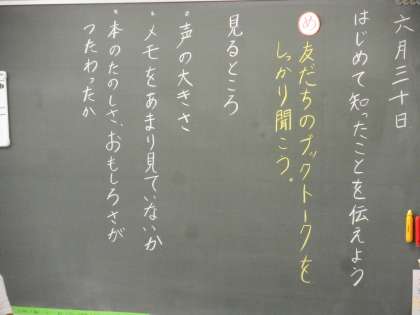 六月三十日
はじめて知ったことを伝えよう
め 友だちのブックトークを
しっかり聞こう。
見るところ
・声の大きさ
・メモをあまり見ていないか
・本のたのしさ、おもしろさが
つたわったか